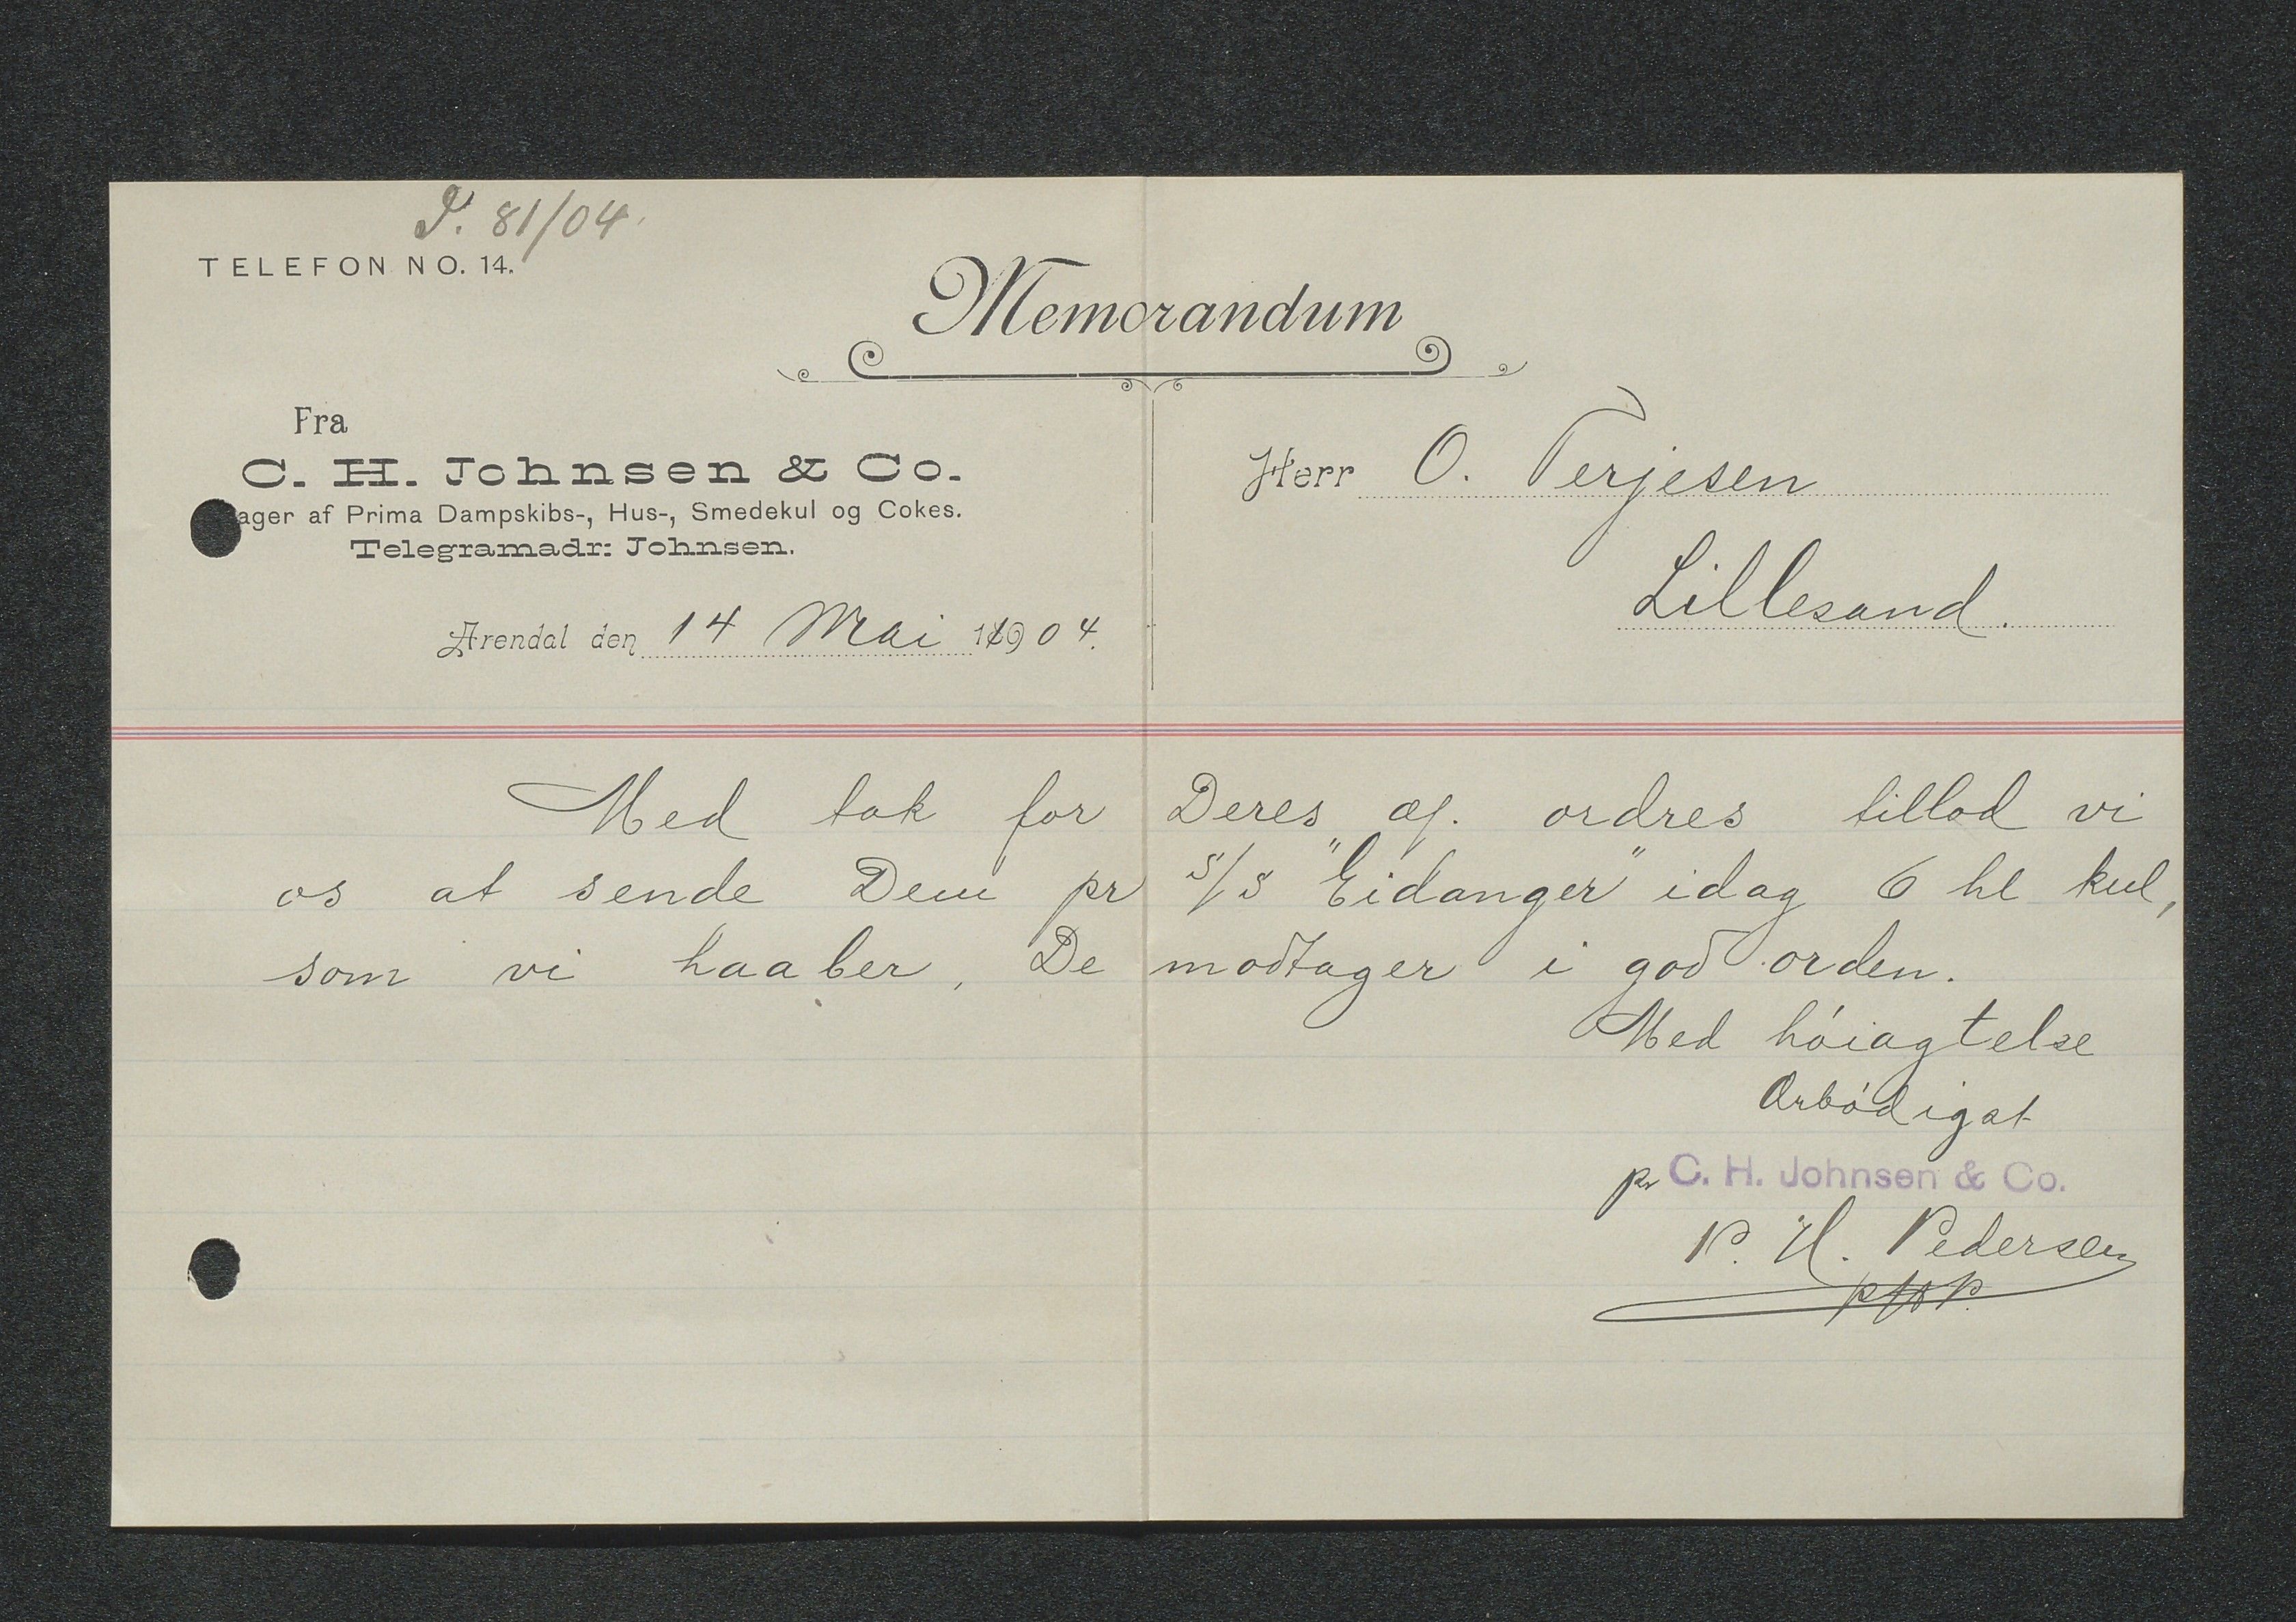 P. 81/04.
TELEFON NO. 14.
Memorandum
Fra
C. H. Johnsen & Co.
ager af Prima Dampskibs-, Hus-, Smedekul og Cokes.
Telegramadr: Johnsen.
Arendal den 14 Mai 1904.
Herr O. Terjesen
Lillesand.
Med tak for Deres æf. ordres tillod vi
os at sende Dem pr s/s "Eidanger" idag 6 hl kul,
som vi haaber, De modtager i god orden.
Med höiagtelse
Ærbödigst
pr C. H. Johnsen & Co.
P. H. Pedersen